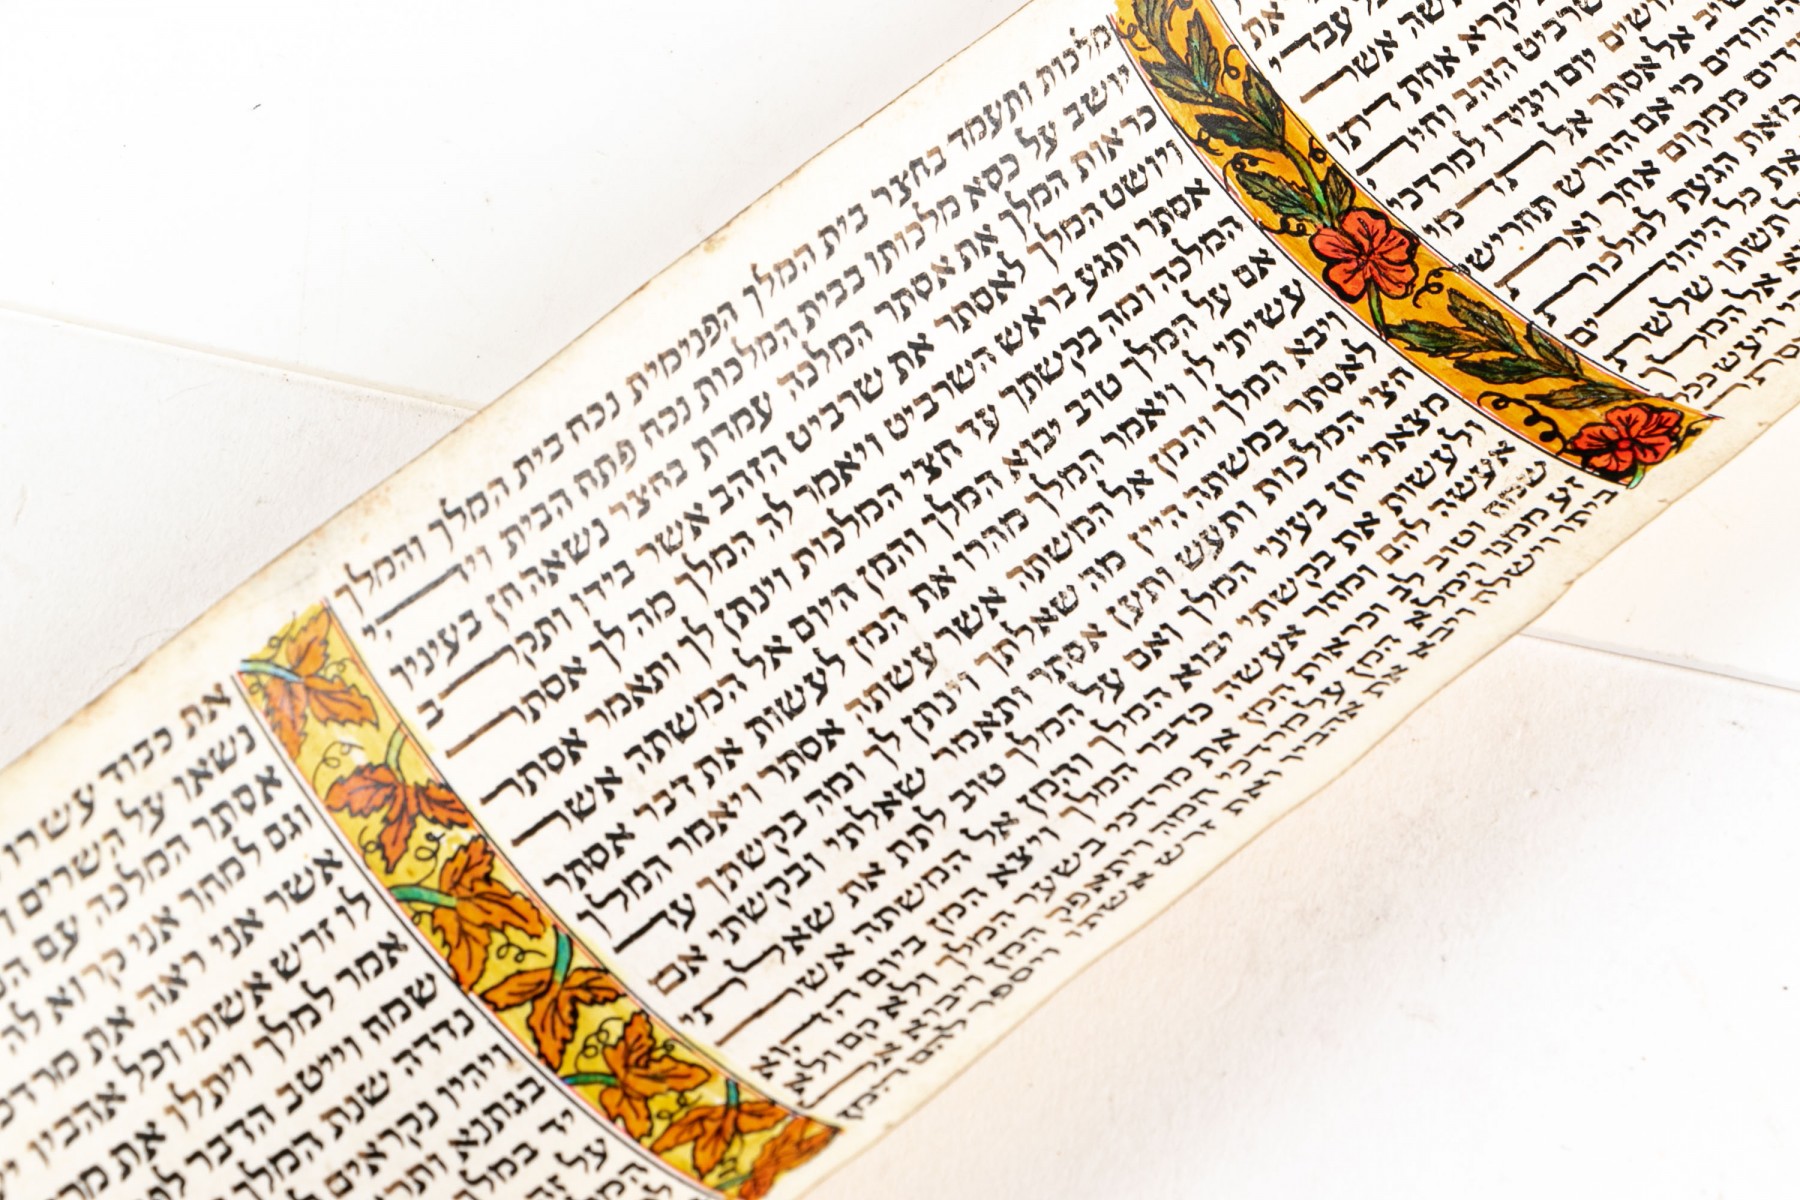 את
עבדי
אשר
יקרא אחת דתו
שרביט הזהב וחיה
יום ויגידו למרדכי
אל אסתר אל תדמי
היהודים כי אם החרש תחרישי
ממקום אחר ואת
כזאת הגעת למלכות
את כל היהודים
תשתו שלשת
אל המלך
ויעש ככל
מלכות ותעמד בחצר בית המלך הפנימית נכח בית המלך והמלך
יושב על כסא מלכותו בבית המלכות נכח פתח הבית ויהי
כראות המלך את אסתר המלכה עמדת בחצר נשאה חן בעיניו
ויושט המלך לאסתר את שרביט הזהב אשר בידו ותקרב
אסתר ותגע בראש השרביט ויאמר לה המלך מה לך אסתר
המלכה ומה בקשתך עד חצי המלכות וינתן לך ותאמר אסתר
אם על המלך טוב יבוא המלך והמן היום אל המשתה אשר
עשיתי לו ויאמר המלך מהרו את המן לעשות את דבר אסתר
ויבא המלך והמן אל המשתה אשר עשתה אסתר ויאמר המלך
לאסתר במשתה היין מה שאלתך וינתן לך ומה בקשתך עד
חצי המלכות ותעש ותען אסתר ותאמר שאלתי ובקשתי אם
מצאתי חן בעיני המלך ואם על המלך טוב לתת את שאלתי
ולעשות את בקשתי יבוא המלך והמן אל המשתה אשר
אעשה להם ומחר אעשה כדבר המלך ויצא המן ביום ההוא
שמח וטוב לב וכראות המן את מרדכי בשער המלך ולא קם ולא
זע ממנו וימלא המן על מרדכי חמה ויתאפק המן ויבוא אל
ביתו וישלח ויבא את אהביו ואת זרש אשתו ויספר להם המן
את כבוד עשרו
נשאו על השרים
אסתר המלכה עם
וגם למחר אני קרוא לה
אשר אני ראה את
לו זרש אשתו וכל אהביו
אמר למלך ויתלו את
שמח וייטב הדבר
נדדה שנת המלך
ויהיו נקראים
בגתנא
יד במלך
על זה